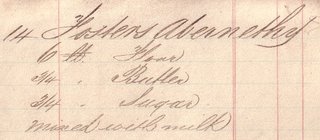 14 Fosters Abernethy
6 lb. Flour
3/4 " Butter
3/4 " Sugar
mixed with milk